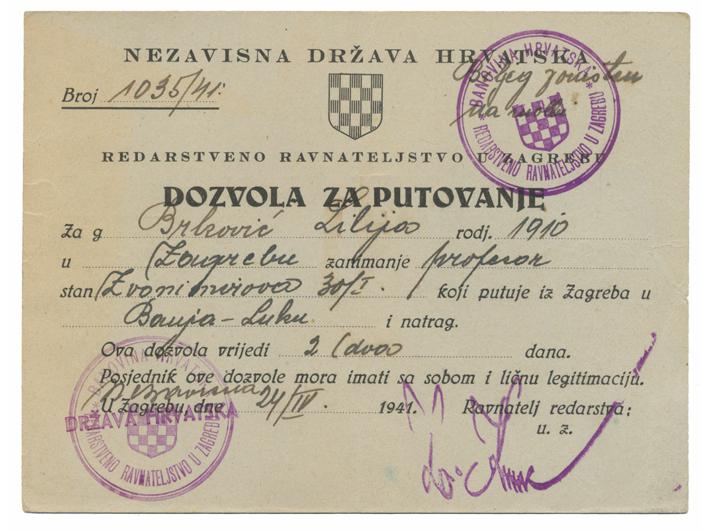 NEZAVISNA DRŽAVA HRVATSKA
Broj 1035/41.
Biljeg poništen
na molbi
BANOVINA HRVATSKA
REDARSTVENO RAVNATELJSTVO U ZAGREBU
REDARSTVENO RAVNATELJSTVO U ZAGREBU
DOZVOLA ZA PUTOVANJE
Za g Brković Lilija rodj. 1910
u Zagrebu zanimanje profesor
stan Zvonimirova 30/I. koji putuje iz Zagreba u
Banja-Luku i natrag.
Ova dozvola vrijedi 2 (dva dana.
Posjednik ove dozvole mora imati sa sobom i ličnu legitimaciju.
U Zagrebu, dne 24/IV. 1941. Ravnatelj redarstva:
u. z.
BANOVINA HRVATSKA
Nezavisna
DRŽAVA HRVATSKA
REDARSTVENO RAVNATELJSTVO U ZAGREBU